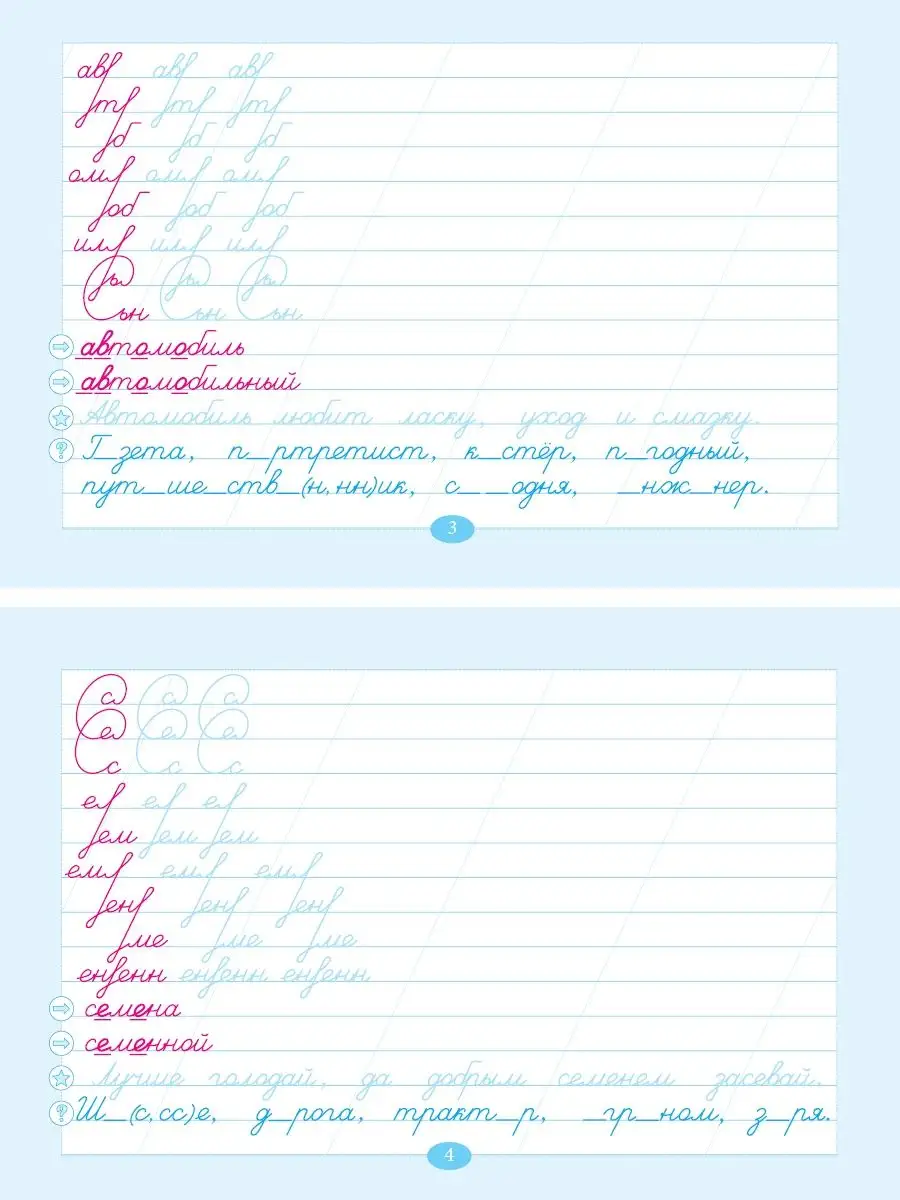 ав ав ав
тр тр тр
об об об
ом ом ом
об об об
им им им
ы ы ы
Сын Сын Сын
автомобиль
автомобильный
Автомобиль любит ласку, уход и смазку.
Г_зета, п_ртретист, к_стёр, п_годный,
пут_ше_ств_(н, нн)ик, с_ _одня, _нж_нер.
3
Са Са Са
Се Се Се
Сс Сс Сс
ел ел ел
ем ем ем
ем ем ем
ен ен ен
ме ме ме
ененн ененн ененн
семена
семенной
Лучше голодай, да добрым семенем засевай.
Ш_(с, сс)е, д_рога, тракт_р, _гр_ном, з_ря.
4